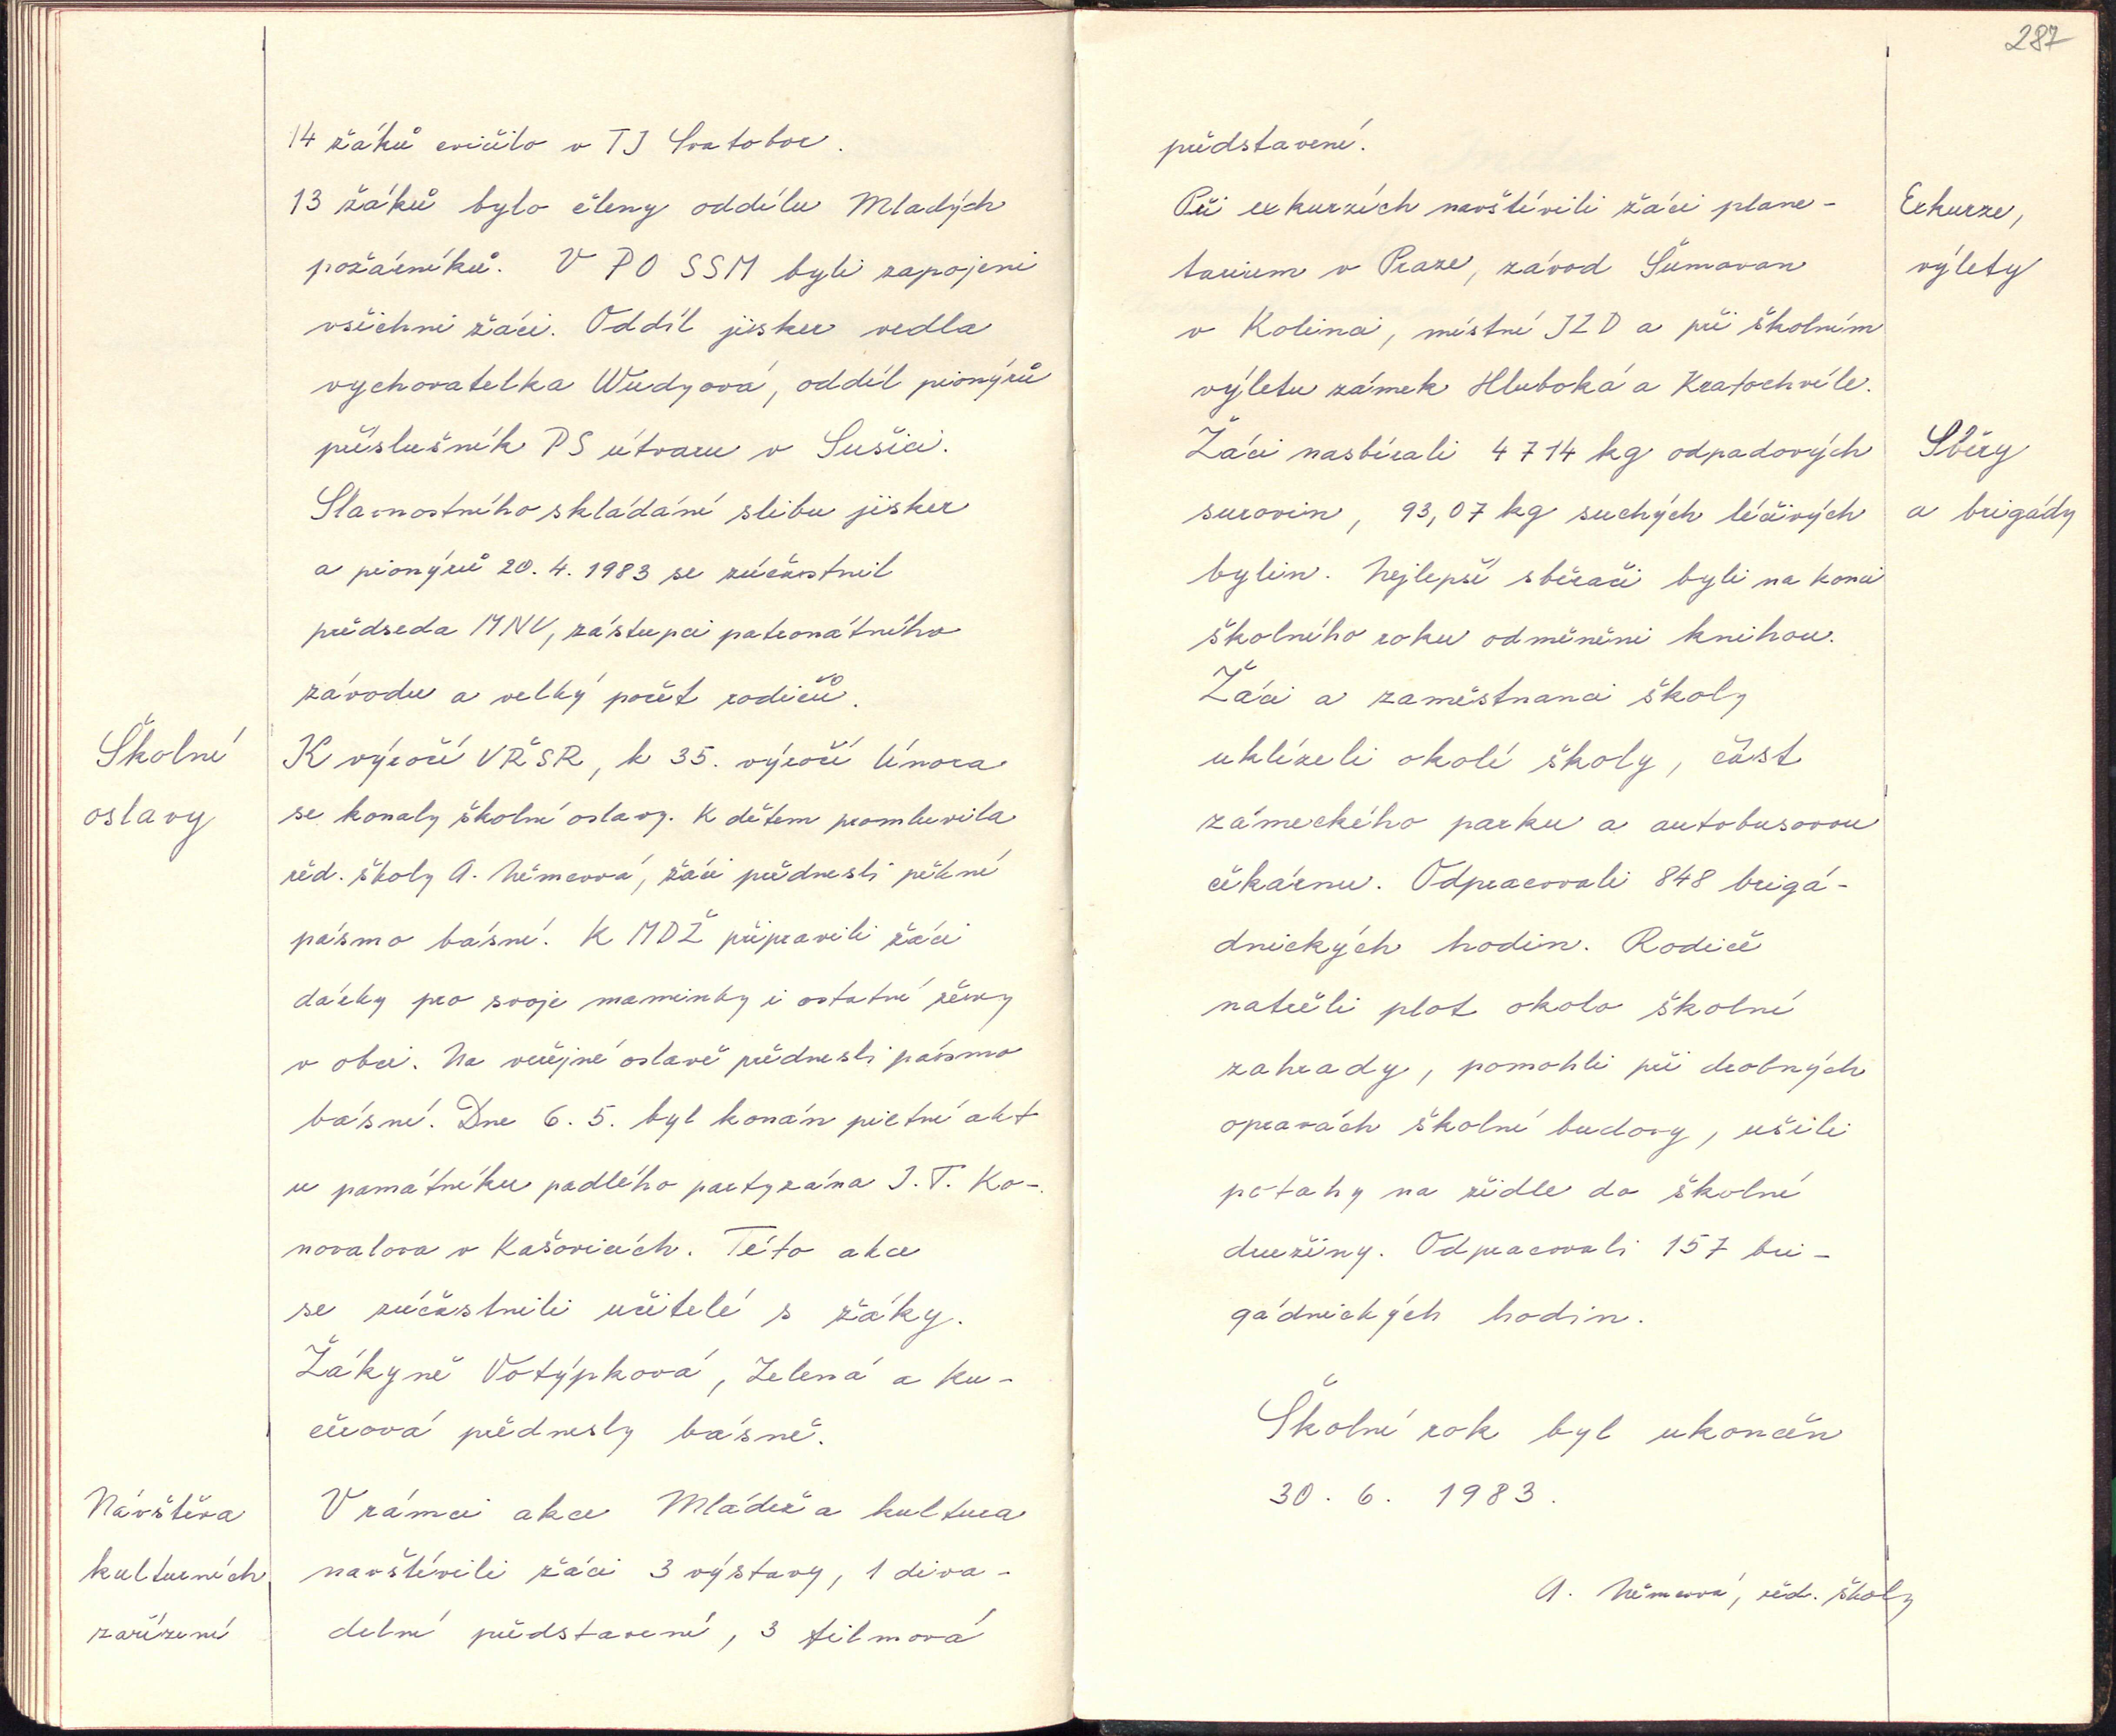 14 žáků cvičilo v TJ Svatobor.
13 žáků bylo členy oddílu Mladých
požárníků. V PO SSM byli zapojeni
všichni žáci. Oddíl jisker vedla
vychovatelka Wudyová, oddíl pionýrů
příslušník PS útvaru v Sušici.
Slavnostního skládání slibu jisker
a pionýrů 20. 4. 1983 se zúčastnil
předseda MNV, zástupci patronátního
závodu a velký počet rodičů.
Školní
oslavy
K výročí VŘSR, k 35. výročí Února
se konaly školní oslavy. K dětem promluvila
řed. školy A. Němcová, žáci přednesli pěkné
pásmo básní. K MDŽ připravili žáci
dárky pro svoje maminky i ostatní ženy
v obci. Na veřejné oslavě přednesli pásmo
básní. Dne 6. 5. byl konán pietní akt
u památníku padlého partyzána J. T. Ko-
novalova v Kašovicích. Této akce
se zúčastnili učitelé s žáky.
Žákyně Votýpková, Zelená a Ku-
čerová přednesly básně.
Návštěva
kulturních
zařízení
V rámci akce Mládež a kultura
navštívili žáci 3 výstavy, 1 diva-
delní představení, 3 filmová
287
představení.
Exkurze,
výlety
Při exkurzích navštívili žáci plane-
tarium v Praze, závod Šumavan
v Kolinci, místní JZD a při školním
výletu zámek Hluboká a Kratochvíle.
Sběry
a brigády
Žáci nasbírali 4 714 kg odpadových
surovin, 93,07 kg suchých léčivých
bylin. Nejlepší sběrači byli na konci
školního roku odměněni knihou.
Žáci a zaměstnanci školy
uklízeli okolí školy, část
zámeckého parku a autobusovou
čekárnu. Odpracovali 848 brigá-
dnických hodin. Rodiče
natřeli plot okolo školní
zahrady, pomohli při drobných
opravách školní budovy, ušili
potahy na židle do školní
družiny. Odpracovali 157 bri-
gádnických hodin.
Školní rok byl ukončen
30. 6. 1983.
A. Němcová, řed. školy